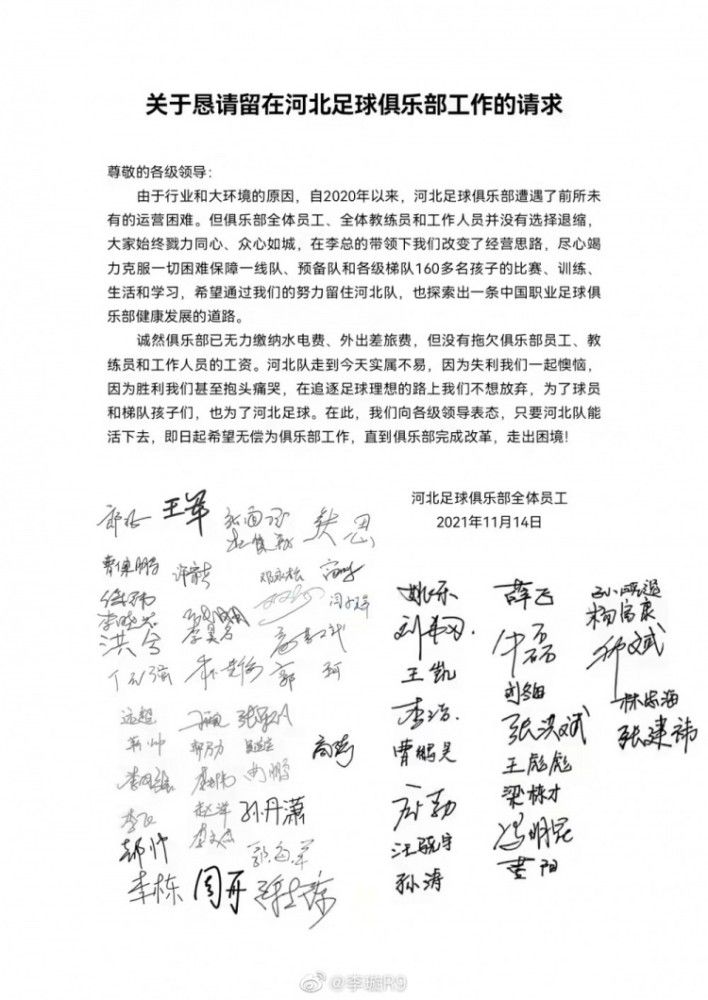 关于恳请留在河北足球俱乐部工作的请求
尊敬的各级领导：
由于行业和大环境的原因，自2020年以来，河北足球俱乐部遭遇了前所未
有的运营困难。但俱乐部全体员工、全体教练员和工作人员并没有选择退缩，
大家始终戮力同心、众心如城，在李总的带领下我们改变了经营思路，尽心竭
力克服一切困难保障一线队、预备队和各级梯队160多名孩子的比赛、训练、
生活和学习，希望通过我们的努力留住河北队，也探索出一条中国职业足球俱
乐部健康发展的道路。
诚然俱乐部已无力缴纳水电费、外出差旅费，但没有拖欠俱乐部员工、教
练员和工作人员的工资。河北队走到今天实属不易，因为失利我们一起懊恼，
因为胜利我们甚至抱头痛哭，在追逐足球理想的路上我们不想放弃，为了球员
和梯队孩子们，也为了河北足球。在此，我们向各级领导表态，只要河北队能
活下去，即日起希望无偿为俱乐部工作，直到俱乐部完成改革，走出困境！
河北足球俱乐部全体员工
2021年11月14日
王军
曹保鹏
李晓芯
洪兮
郭珂
高莹
曲鹏
孙丹潇
郝帅
李栋
周开
姚乐
薛飞
王凯
刘维
杨富康
李浩
张洪斌
林志海
张建祎
曹鹏昊
王彪彪
梁栋才
汪晓宇
冯明昆
孙涛
黄阳
@李璇R9